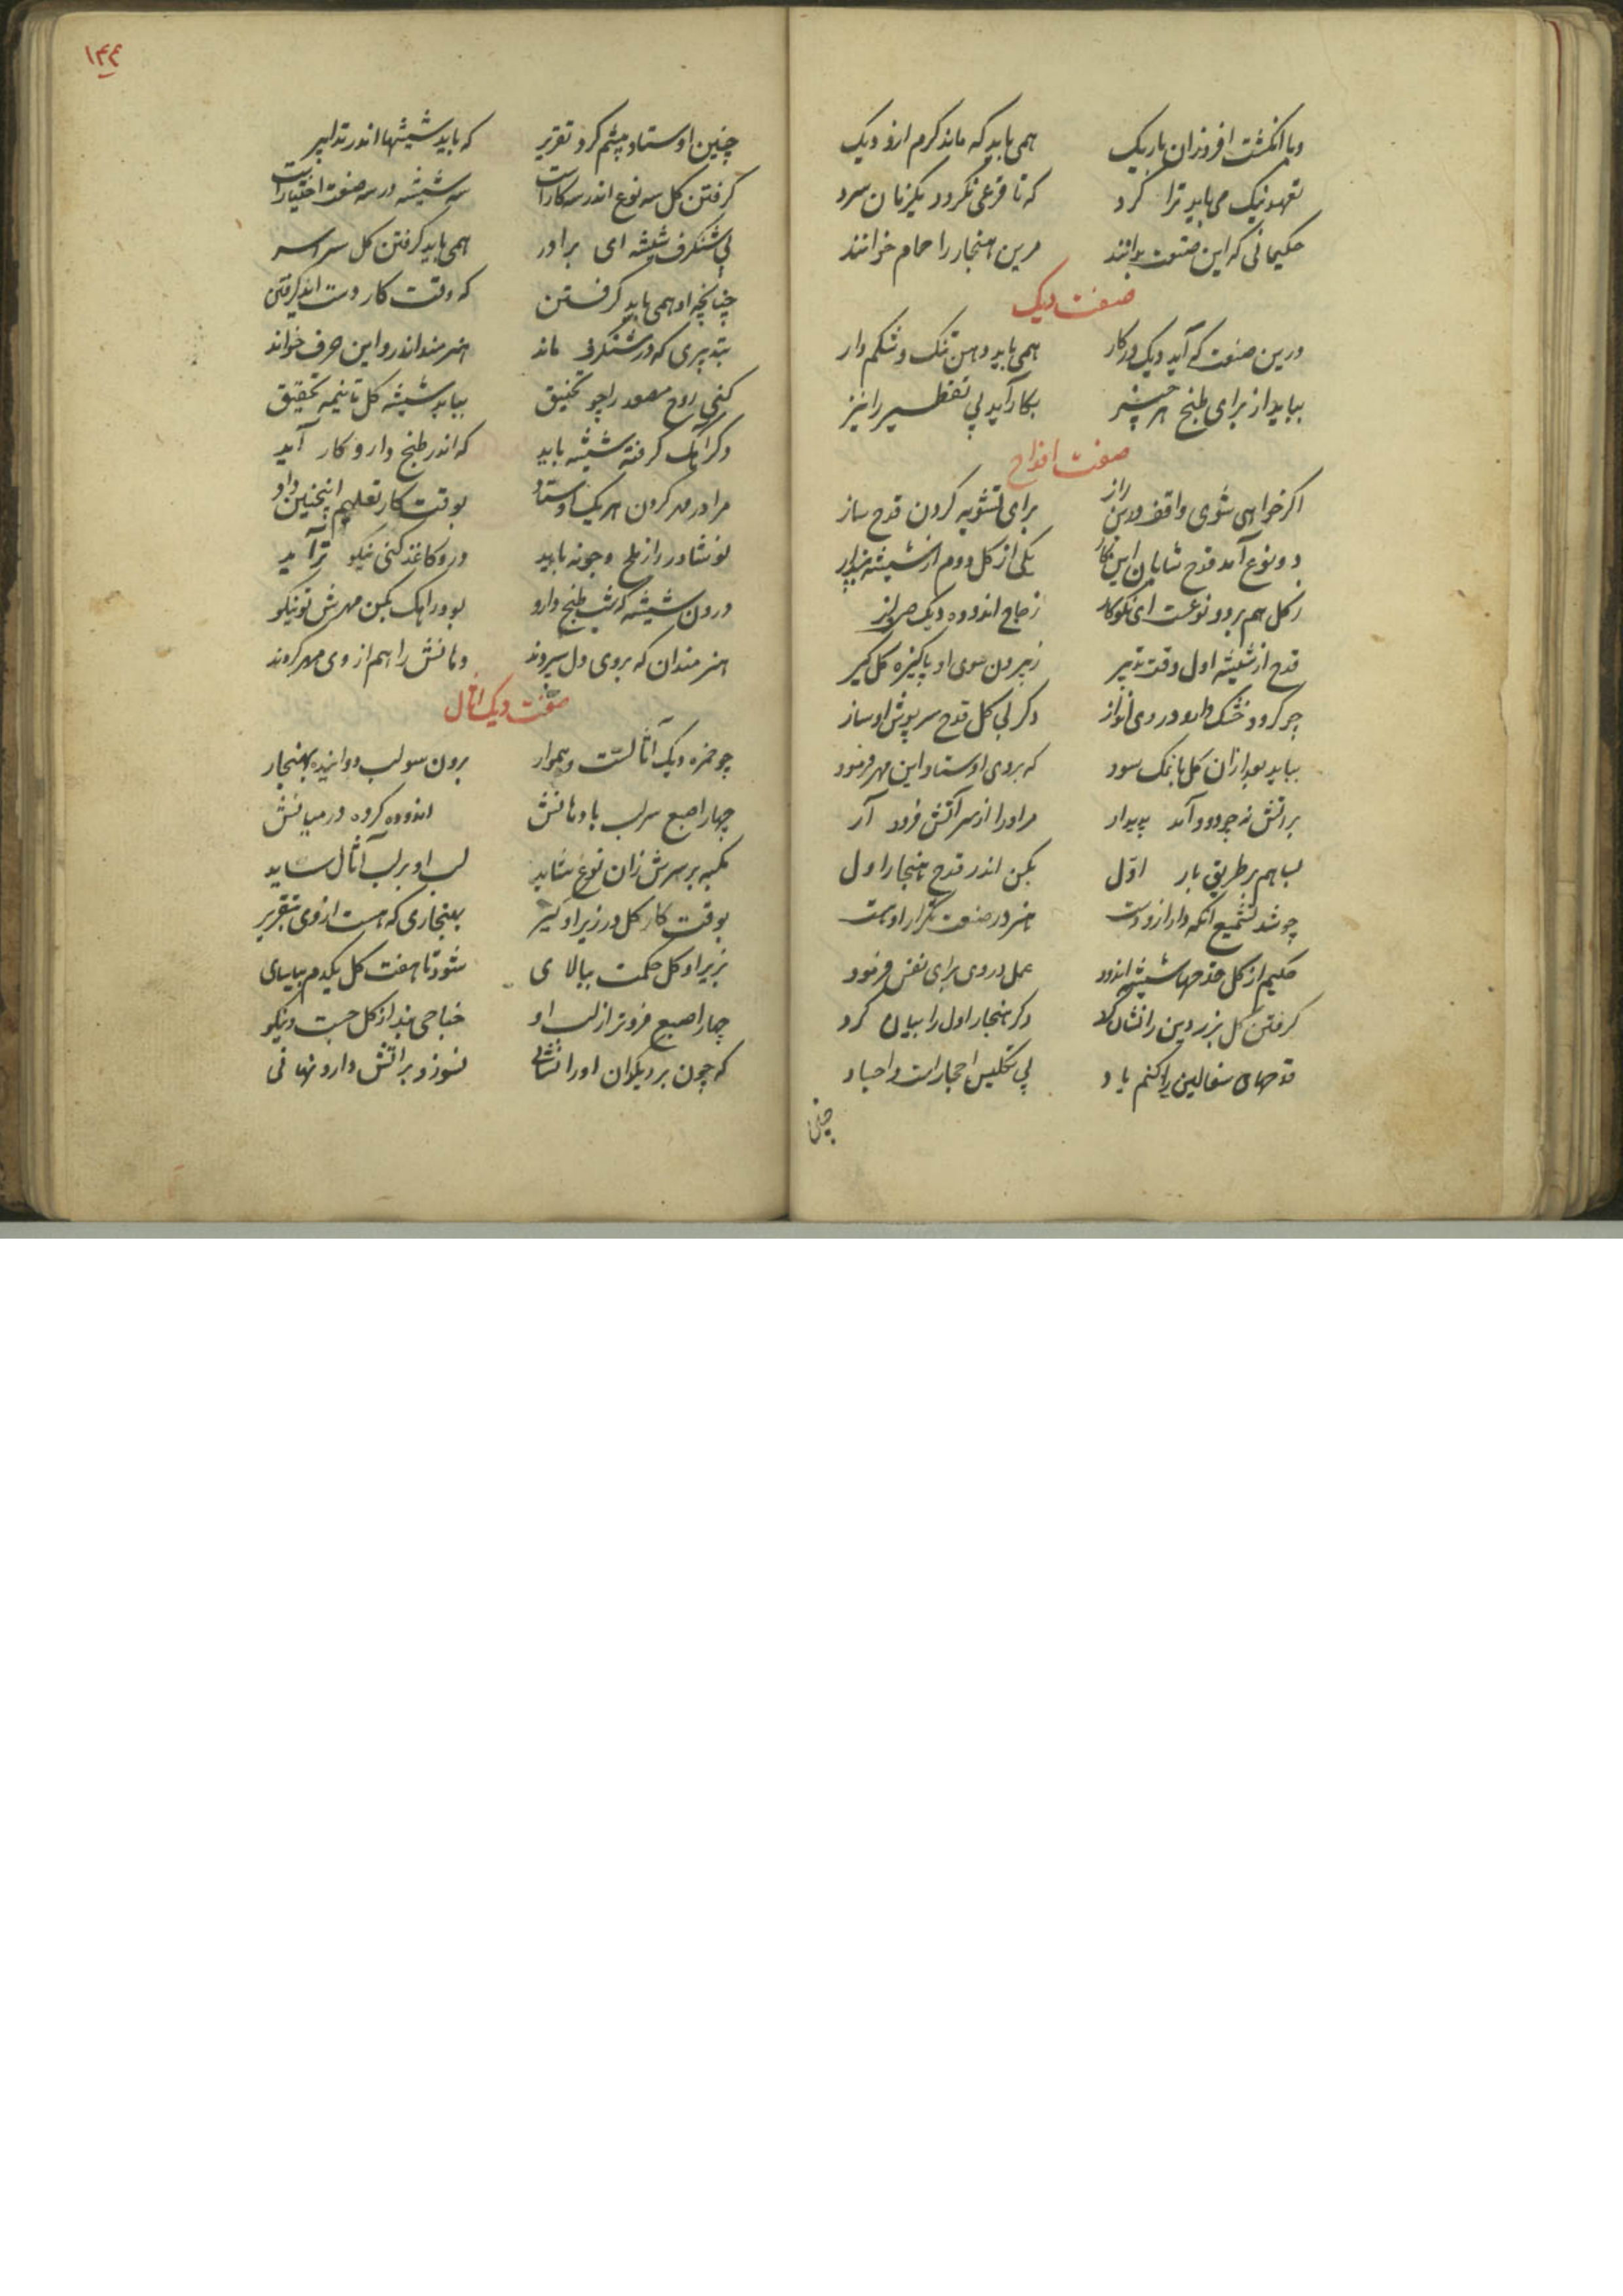 دما انکشت افروزان باریک همی باید که ماند کرم ازو دیک
تعهد نیک می باید ترا کرد که تا قرعی نکردد یکزمان سرد
حکیمانی که این صنعت بدانند مرین هنجار را حمام خوانند
صفت دیک
درین صنعت که آید دیک درکار همی باید دهن تنک و شکم دار
بباید از برای طبخ هر چیز بکار آید پی تقطیر را نیز
صفت اقداح
اکر خواهی شوی واقف درین راز برای تشویه کردن قدح ساز
دو نوع آمد قدح شایان این کار یکی از کل دوم از شیشه
ز کل هم بر دو نوعست ای نکوکار زجاج اندوده دیک
قدح از شیشه اول وقت تدبیر ز بیرون سوی او پاکیزه کل کیر
چو کردد خشک دارو در وی انداز دکر لی کل قدح سرپوش او ساز
بباید بعد ازان کل با نمک سود که بروی اوستاد این مهر فرمود
بر اتش نه چو دود آمد پدیدار مر اورا از سر آتش فرود آر
لب هم بر طریق بار اوّل بکن اندر قدح هنجار اول
چو شد تشمیع انکه دار ازو دست هنر در صنعت تکرار اوست
حکیم از کل قدحها شیشه اندود عمل در وی برای نفس فرمود
کرفتن کل بزردین را نشان کرد دکر هنجار اول را بیان کرد
قدحهای سفالین را کنم یاد پی تکلیس احجارست و اجساد
چنین
۱۴۴
چنین اوستاد پیشم کرد تقریر که باید شیشها اندر تدابیر
کرفتن کل سه نوع اندر سه کارست سه شیشه در سه صنعت اختیارست
پی شنکرف شیشه ای برادر همی باید کرفتن کل سراسر
چنانچه او همی باید کرفتن که وقت کار دست اندر کرفتن
بتدبیری که در شنکرف ماند هنرمند اندرو این حرف خواند
کنی روح مصعد را چو تخنیق بباید شیشه کل تا نیمه تحقیق
دکر کرفته شیشه باید که اندر طبخ دارو کار آید
مرا در مهر کردن هر یک اوستاد بوقت کار تعلیم اینچنین داد
نوشادر را ز ملح و چونه باید درو کاغذ کنی نیکو ترآید
درون شیشه که شب طبخ دارو بود راهک بکن مهرش تو نیکو
هنرمندان که بروی دل سپردند دهانش را هم از وی مهر کردند
صفت دیک اثال
چو خمره دیک آثالست و هموار برون سو لب دوانیده بهنجار
چهار اصبع سر لب با دهانش اندوده کرده در میانش
مکبه بر سرش زان نوع شاید لب او بر لب آثال ساید
بوقت کار کل در زیر او کیر بهنجاری که هست از وی بتقریر
بزیر او کل حکمت بیالای شود تا هفت کل یکدم بیاسای
چهار اصبع فروتر از لب او خباحی بند از کل چست و نیکو
که چون بر دیکدان اورا نشانی نسوزد بر اتش دارو نهانی